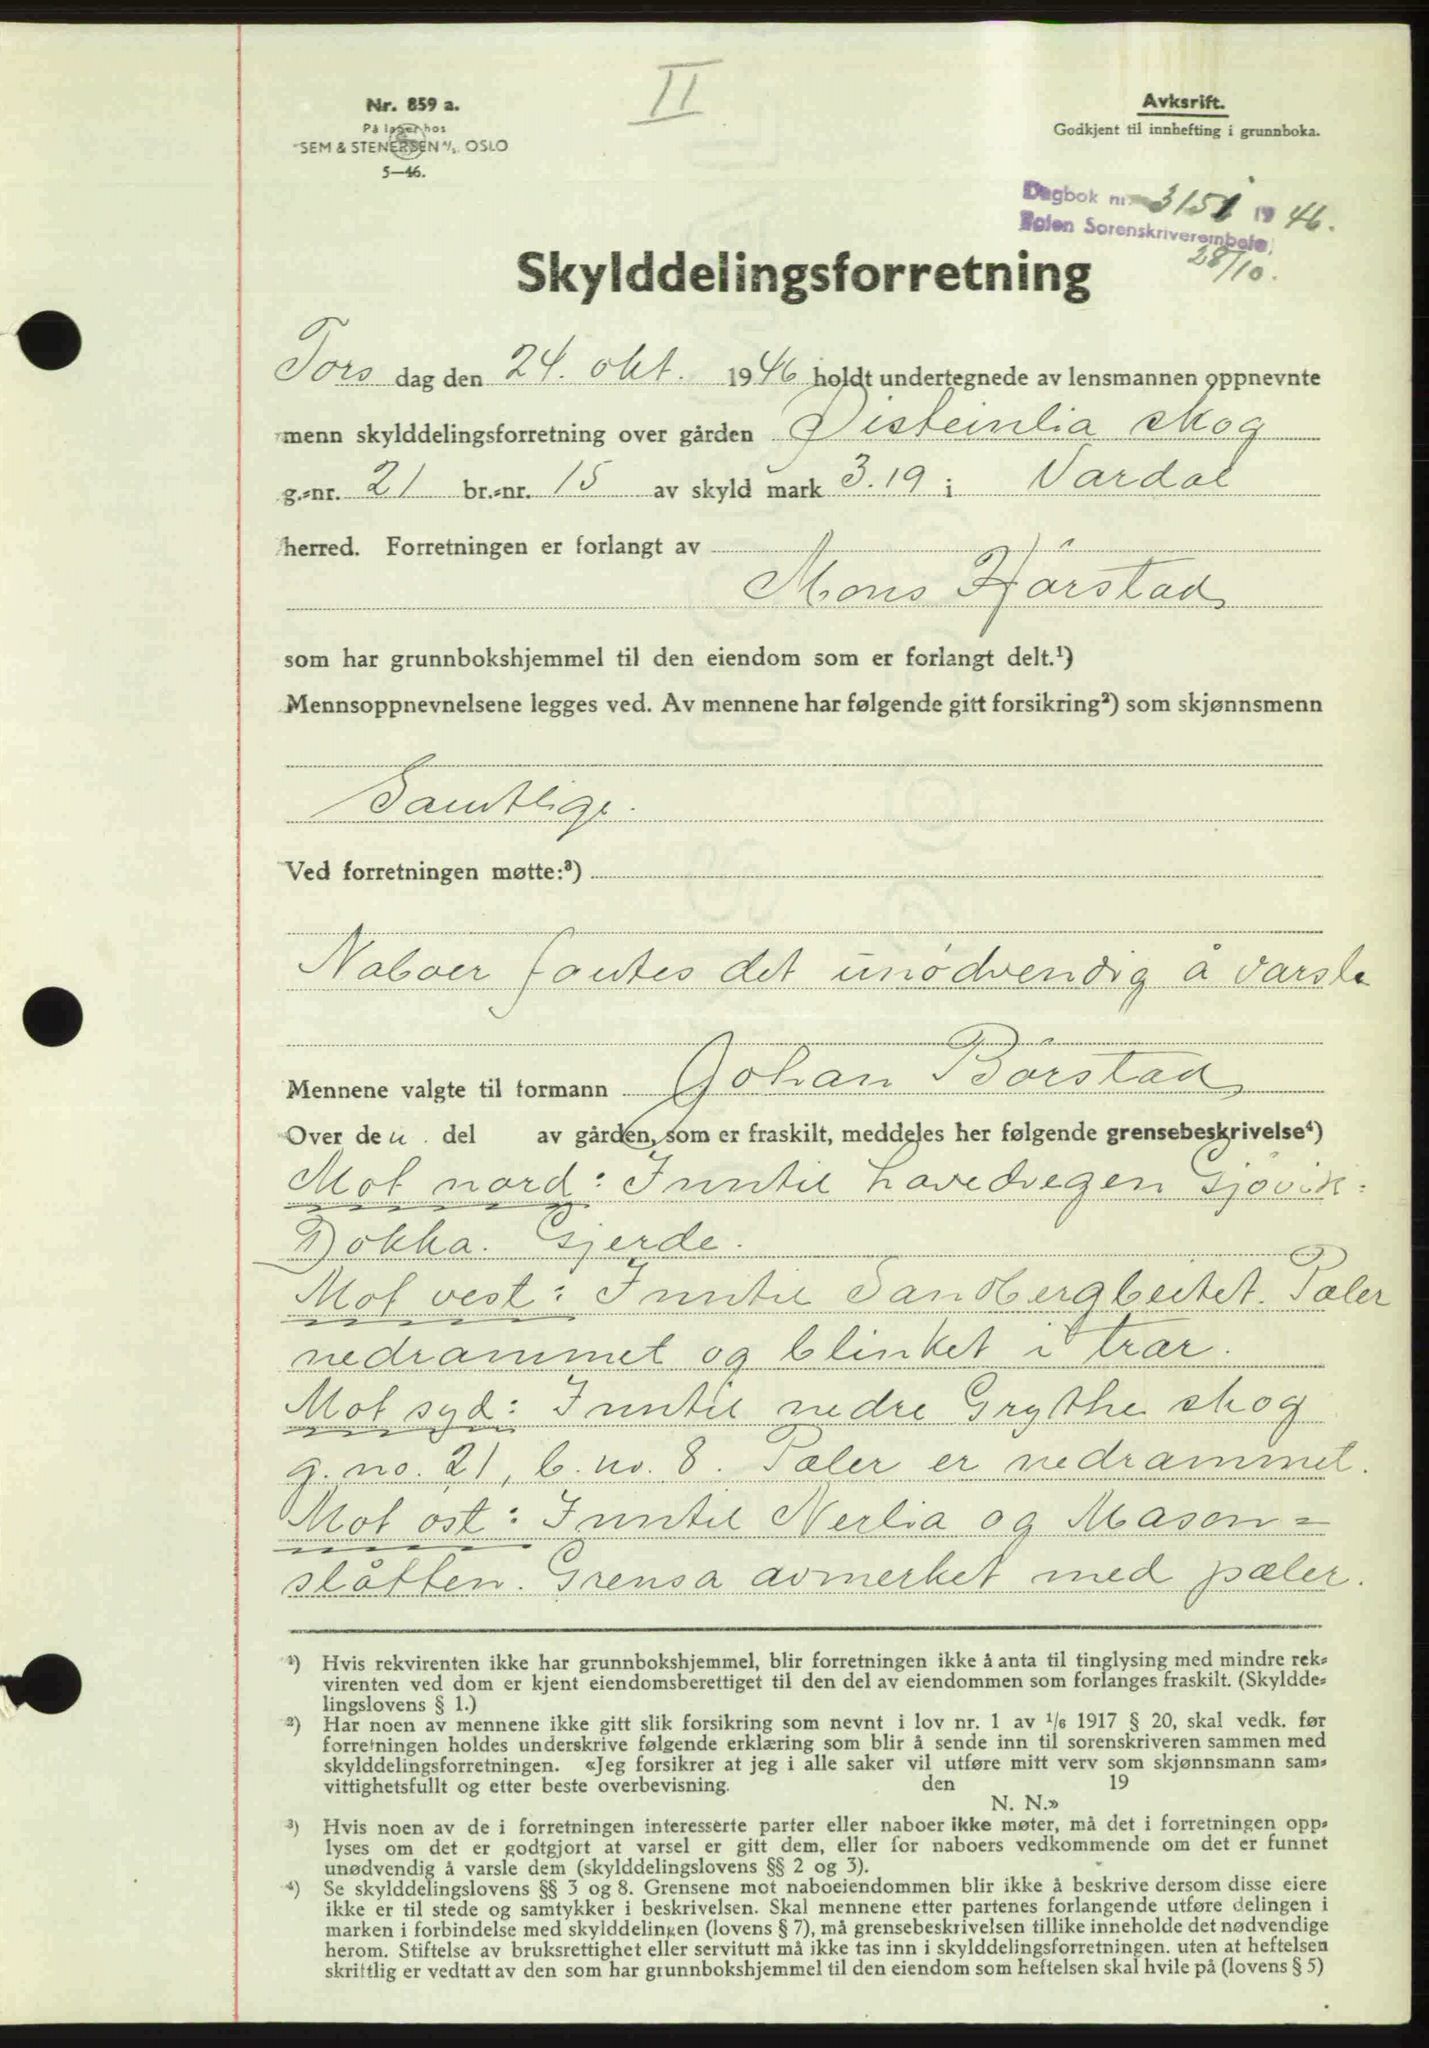 II
Nr. 859 a.
På lager hos
SEM & STENERSEN A/S OSLO
5—46.
Avksrift.
Godkjent til innhefting i grunnboka.
Dagbok nr. 3151 1946.
Toten Sorenskriverembete
28/10.
Skylddelingsforretning
Tors dag den 24. okt. 1946 holdt undertegnede av lensmannen oppnevnte
menn skylddelingsforretning over gården Disteinlia skog
g.=nr. 21 br.=nr. 15 av skyld mark 3.19 i Vardal
herred. Forretningen er forlangt av
Mons Hårstad
som har grunnbokshjemmel til den eiendom som er forlangt delt.¹)
Mennsoppnevnelsene legges ved. Av mennene har følgende gitt forsikring²) som skjønnsmenn
Samtlige.
Ved forretningen møtte:³)
Naboer fantes det unødvendig å varsle
Mennene valgte til formann Johan Börstad
Over den del av gården, som er fraskilt, meddeles her følgende grensebeskrivelse⁴)
Mot nord: Inntil hovedvegen Gjövik=
Dokka. Gjerde.
Mot vest: Inntil Sandbergbeitet. Pæler
nedrammet og blinket i trær.
Mot syd: Inntil nedre Grythe skog
g. no. 21, b. no. 8. Pæler er nedrammet.
Mot ost: Inntil Nerlia og Mason=
slåtten. Grensa avmerket med pæler.
¹) Hvis rekvirenten ikke har grunnbokshjemmel, blir forretningen ikke å anta til tinglysing med mindre rek=
virenten ved dom er kjent eiendomsberettiget til den del av eiendommen som forlanges fraskilt. (Skyldde=
lingslovens § 1.)
²) Har noen av mennene ikke gitt slik forsikring som nevnt i lov nr. 1 av 1/6 1917 § 20, skal vedk. før
forretningen holdes underskrive følgende erklæring som blir å sende inn til sorenskriveren sammen med
skylddelingsforretningen. «Jeg forsikrer at jeg i alle saker vil utføre mitt verv som skjønnsmann sam=
vittighetsfullt og etter beste overbevisning. den 19
N. N.»
³) Hvis noen av de i forretningen interesserte parter eller naboer ikke møter, må det i forretningen opp=
lyses om det er godtgjort at varsel er gitt dem, eller for naboers vedkommende om det er funnet
unødvendig å varsle dem (skylddelingslovens §§ 2 og 3).
⁴) Se skylddelingslovens §§ 3 og 8. Grensene mot naboeiendommen blir ikke å beskrive dersom disse eiere
ikke er til stede og samtykker i beskrivelsen. Skal mennene etter partenes forlangende utføre delingen i
marken i forbindelse med skylddelingen (lovens § 7), må grensebeskrivelsen tillike inneholde det nødvendige
herom. Stiftelse av bruksrettighet eller servitutt må ikke tas inn i skylddelingsforretningen. uten at heftelsen
skriftlig er vedtatt av den som har grunnbokshjemmel til den eiendom som heftelsen skal hvile på (lovens § 5)